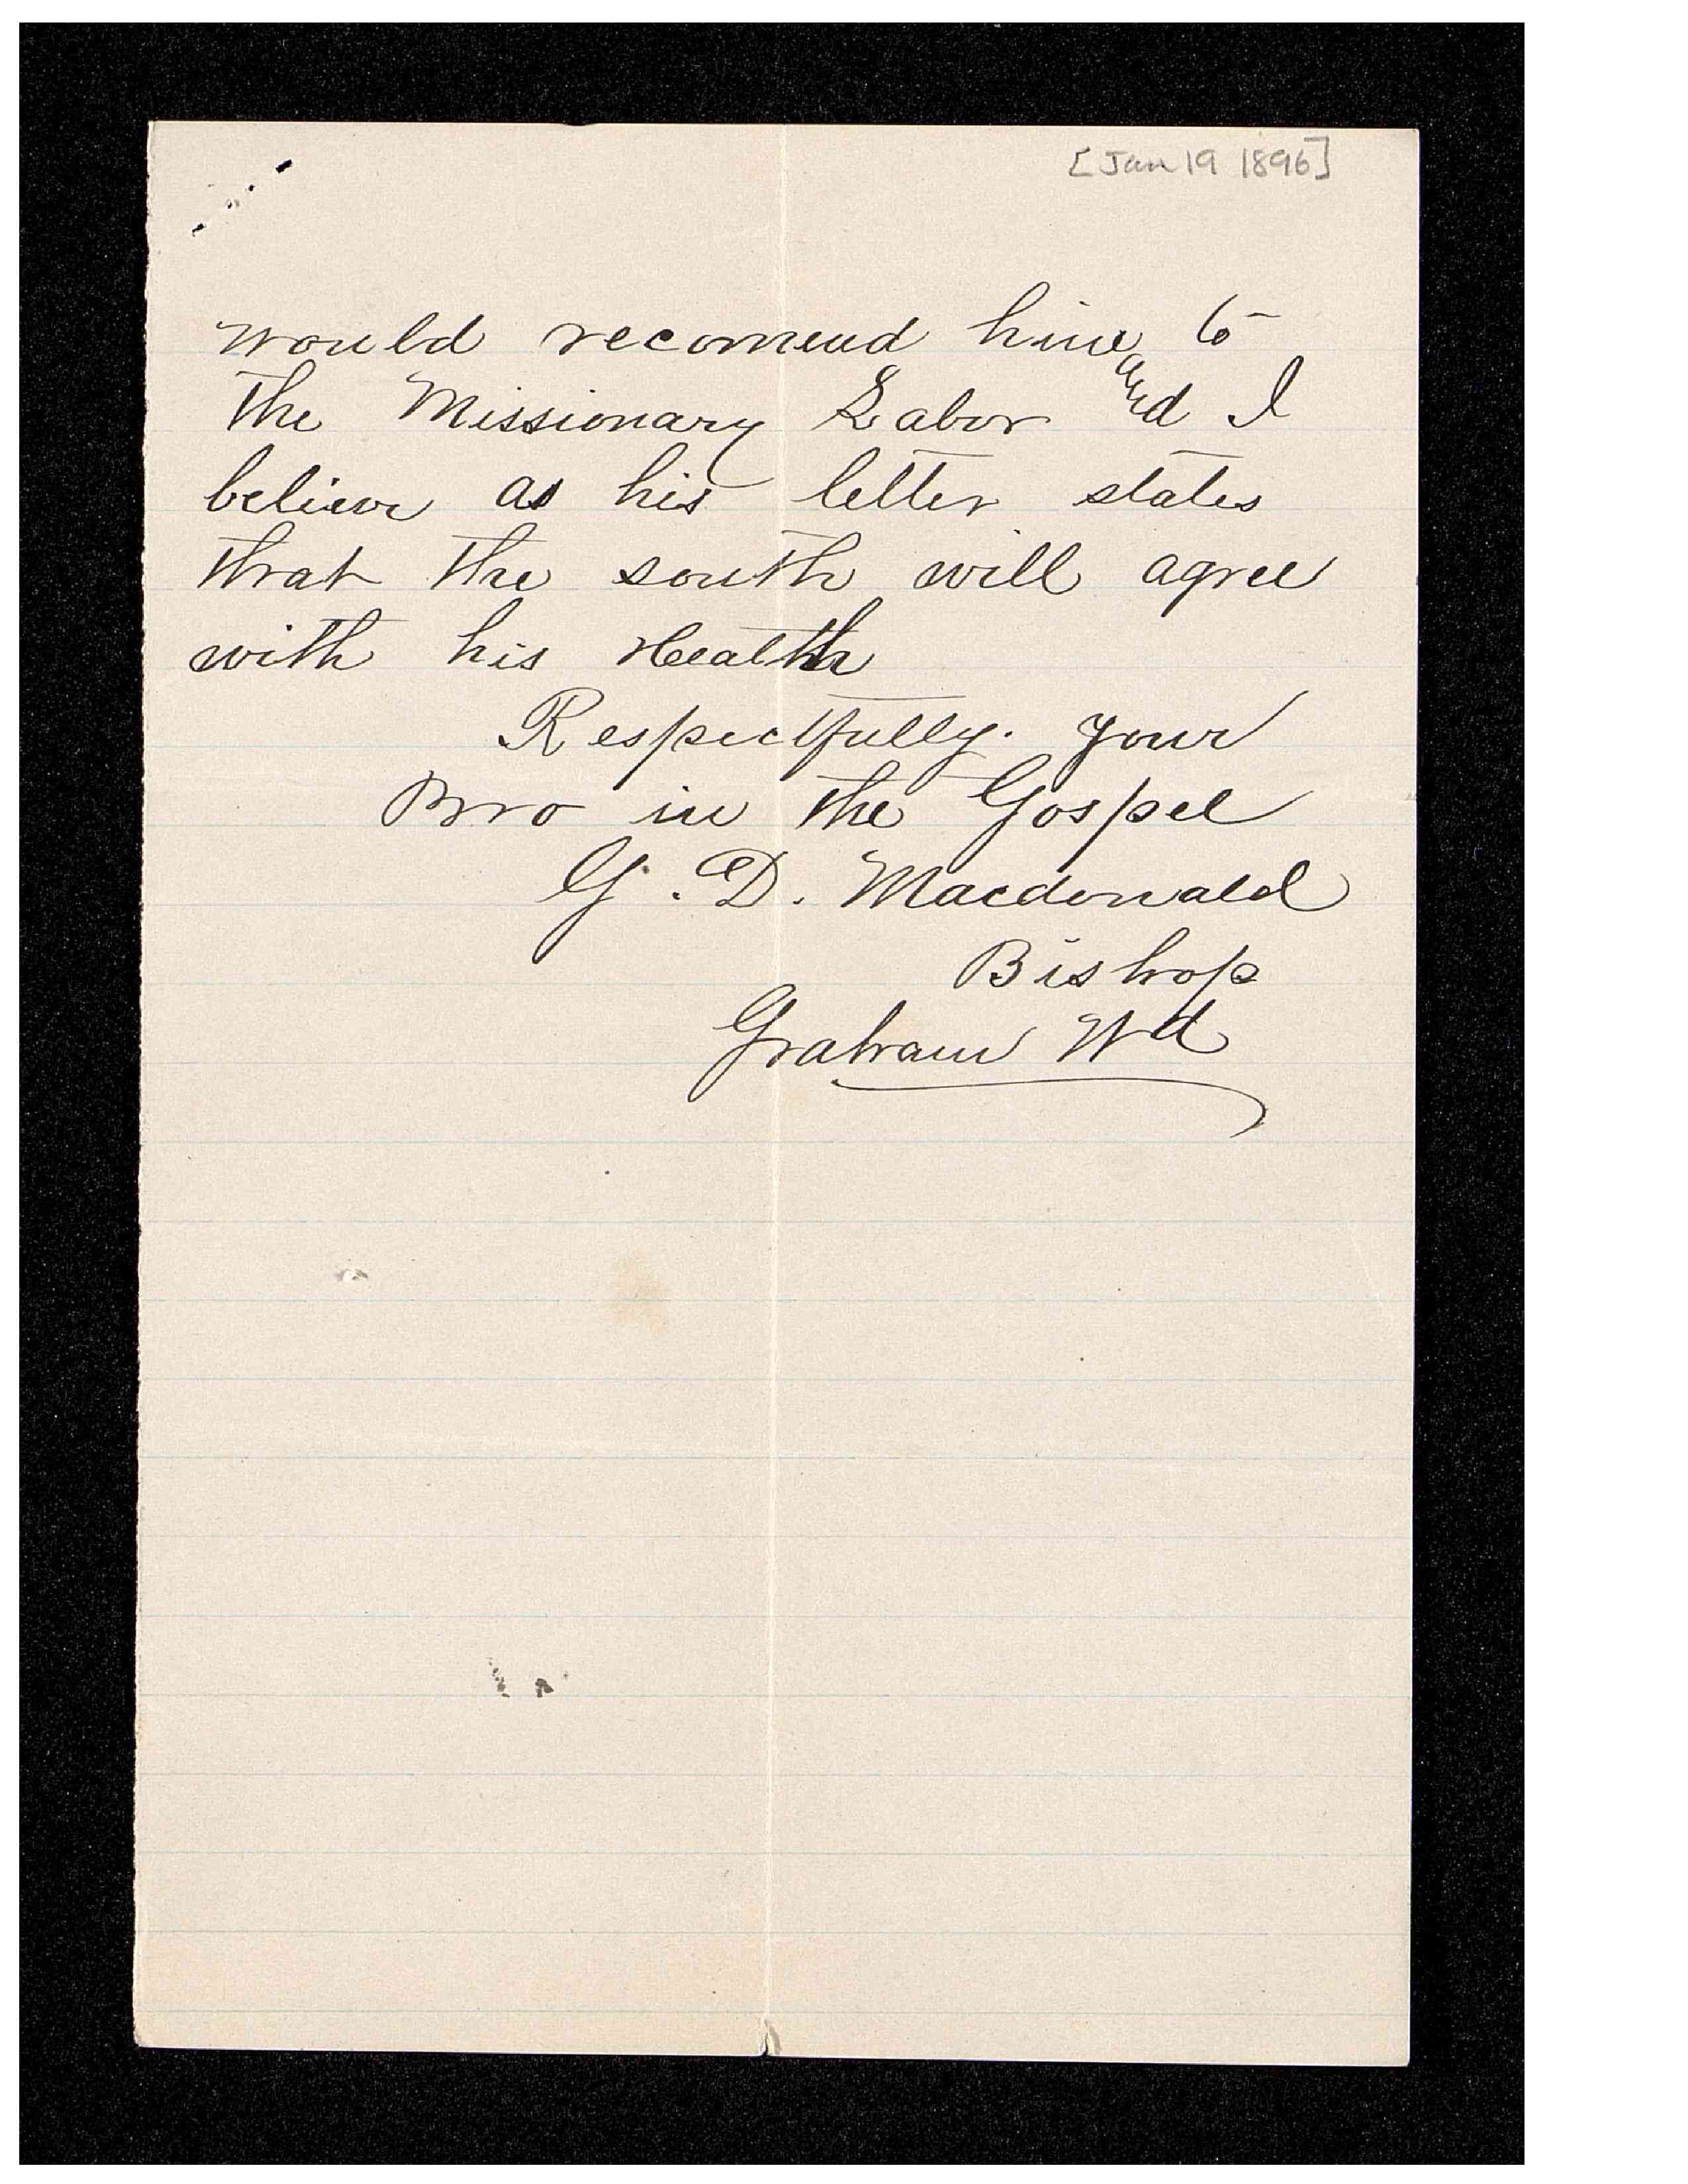 [Jan 19 1896]
would recomend him to
the Missionary Labor and I
believe as his letter states
that the south will agree
with his Health
Respectfully. your
Bro in the Gospel
G. D. Macdonald
Bishop
Graham Wd